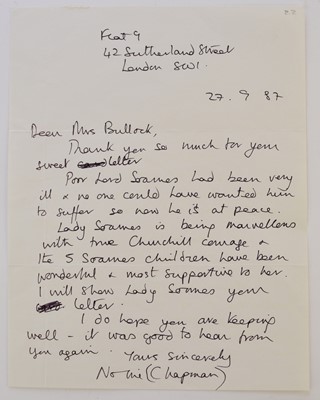 Flat 9
42 Sutherland Street
London SW1.
27. 9 87
Dear Mrs Bullock,
Thank you so much for your
sweet letter
Poor Lord Soames had been very
ill & no one could have wanted him
to suffer so now he is at peace.
Lady Soames is being marvellous
with true Churchill courage &
the 5 Soames children have been
wonderful & most supportive to her.
I will show Lady Soames your
letter.
I do hope you are keeping
well - it was good to hear from
you again. Yours sincerely
Nonie (Chapman)